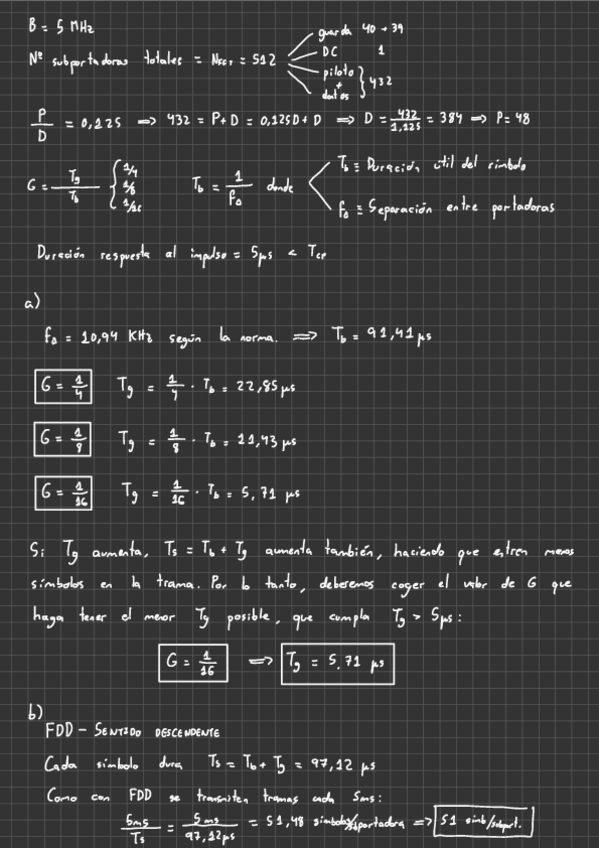 B = 5 MHz
guarda 40 + 39
Nº subportadoras totales = N_FFT = 512
DC 1
piloto + datos } 432
P/D = 0,125 ⇒ 432 = P+D = 0,125D + D ⇒ D = 432/1,125 = 384 ⇒ P = 48
G = Tg/Tb { 1/4 1/8 1/16
Tb = 1/fΔ donde
Tb ≡ Duración útil del símbolo
fΔ ≡ Separación entre portadoras
Duración respuesta al impulso = 5μs < Tcp
a)
fΔ = 10,94 KHz según la norma. ⇒ Tb = 91,41 μs
G = 1/4 Tg = 1/4 · Tb = 22,85 μs
G = 1/8 Tg = 1/8 · Tb = 11,43 μs
G = 1/16 Tg = 1/16 · Tb = 5,71 μs
Si Tg aumenta, Ts = Tb + Tg aumenta también, haciendo que entren menos
símbolos en la trama. Por lo tanto, deberemos coger el valor de G que
haga tener el menor Tg posible, que cumpla Tg > 5μs:
G = 1/16 ⇒ Tg = 5,71 μs
b)
FDD - SENTIDO DESCENDENTE
Cada símbolo dura Ts = Tb + Tg = 97,12 μs
Como con FDD se transmiten tramas cada 5ms:
5ms/Ts = 5ms/97,12μs = 51,48 símbolos/subportadora ⇒ 51 simb/subport.